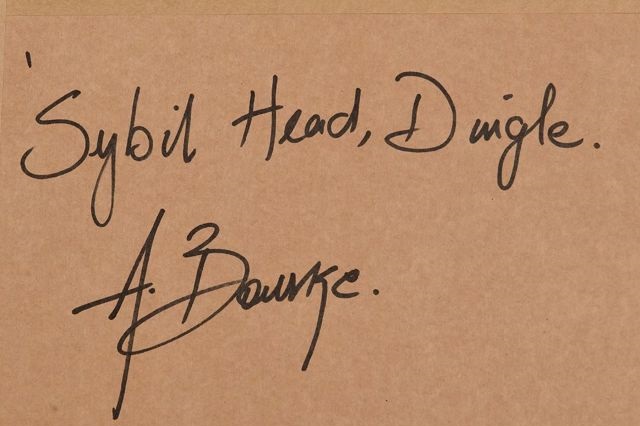 'Sybil Head, Dingle.
A. Bourke.